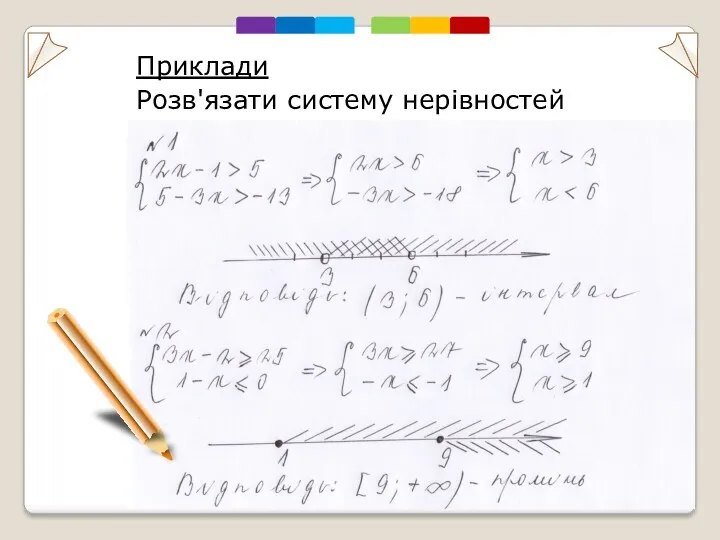 Приклади
Розв'язати систему нерівностей
№1
{2x-1>5 => {2x>6 => {x>3
5-3x>-13 -3x>-18 x<6
3 6
Відповідь: (3; 6) - інтервал
№2
{3x-2⩾25 => {3x⩾27 => {x⩾9
1-x⩽0 -x⩽-1 x⩾1
1 9
Відповідь: [9; +∞) - промінь